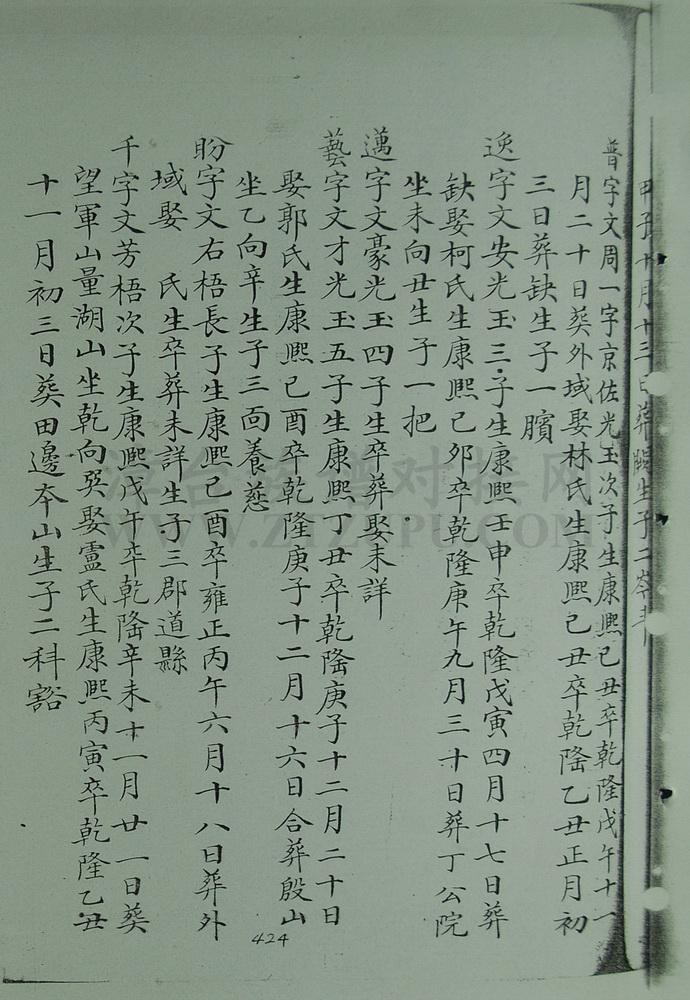 甲子十月十三日葬缺生子二岑
普字文周一字京佐光玉次子生康熙己丑卒乾隆戊午十一
月二十日葵外域娶林氏生康熙己丑卒乾隆乙丑正月初
三日葬缺生子一臏
逸字文安光玉三子生康熙壬申卒乾隆戊寅四月十七日葬
缺娶柯氏生康熙己卯卒乾隆庚午九月三十日葬丁公院
坐未向丑生子一把
邁字文豪光玉四子生卒葬娶未詳
藝字文才光玉五子生康熙丁丑卒乾隆庚子十二月二十日
娶郭氏生康熙己酉卒乾隆庚子十二月十六日合葬殷山
坐乙向辛生子三面養慈
盼字文右梧長子生康熙己酉卒雍正丙午六月十八日葬外
域娶 氏生卒葬未詳生子三郡道縣
千字文芳梧次子生康熙戊午卒乾隆辛未十一月廿一日葵
望軍山量湖山坐乾向巽娶盧氏生康熙丙寅卒乾隆乙丑
十一月初三日葵田邊夲山生子二科谿
424
WWW.ZTZUPU.COM